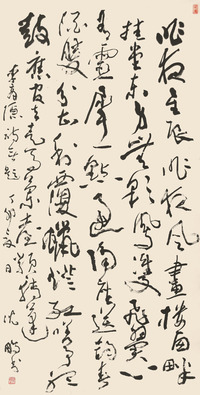 昨夜星辰昨夜風畫樓西畔
桂堂東身無彩鳳雙飛翼心
有靈犀一點通隔座送鈎春
酒暖分曹射覆蠟燈紅嗟余聽
鼓應官去走馬蘭臺類轉蓬
李商隱詩無題 丁卯夏日 沈鵬